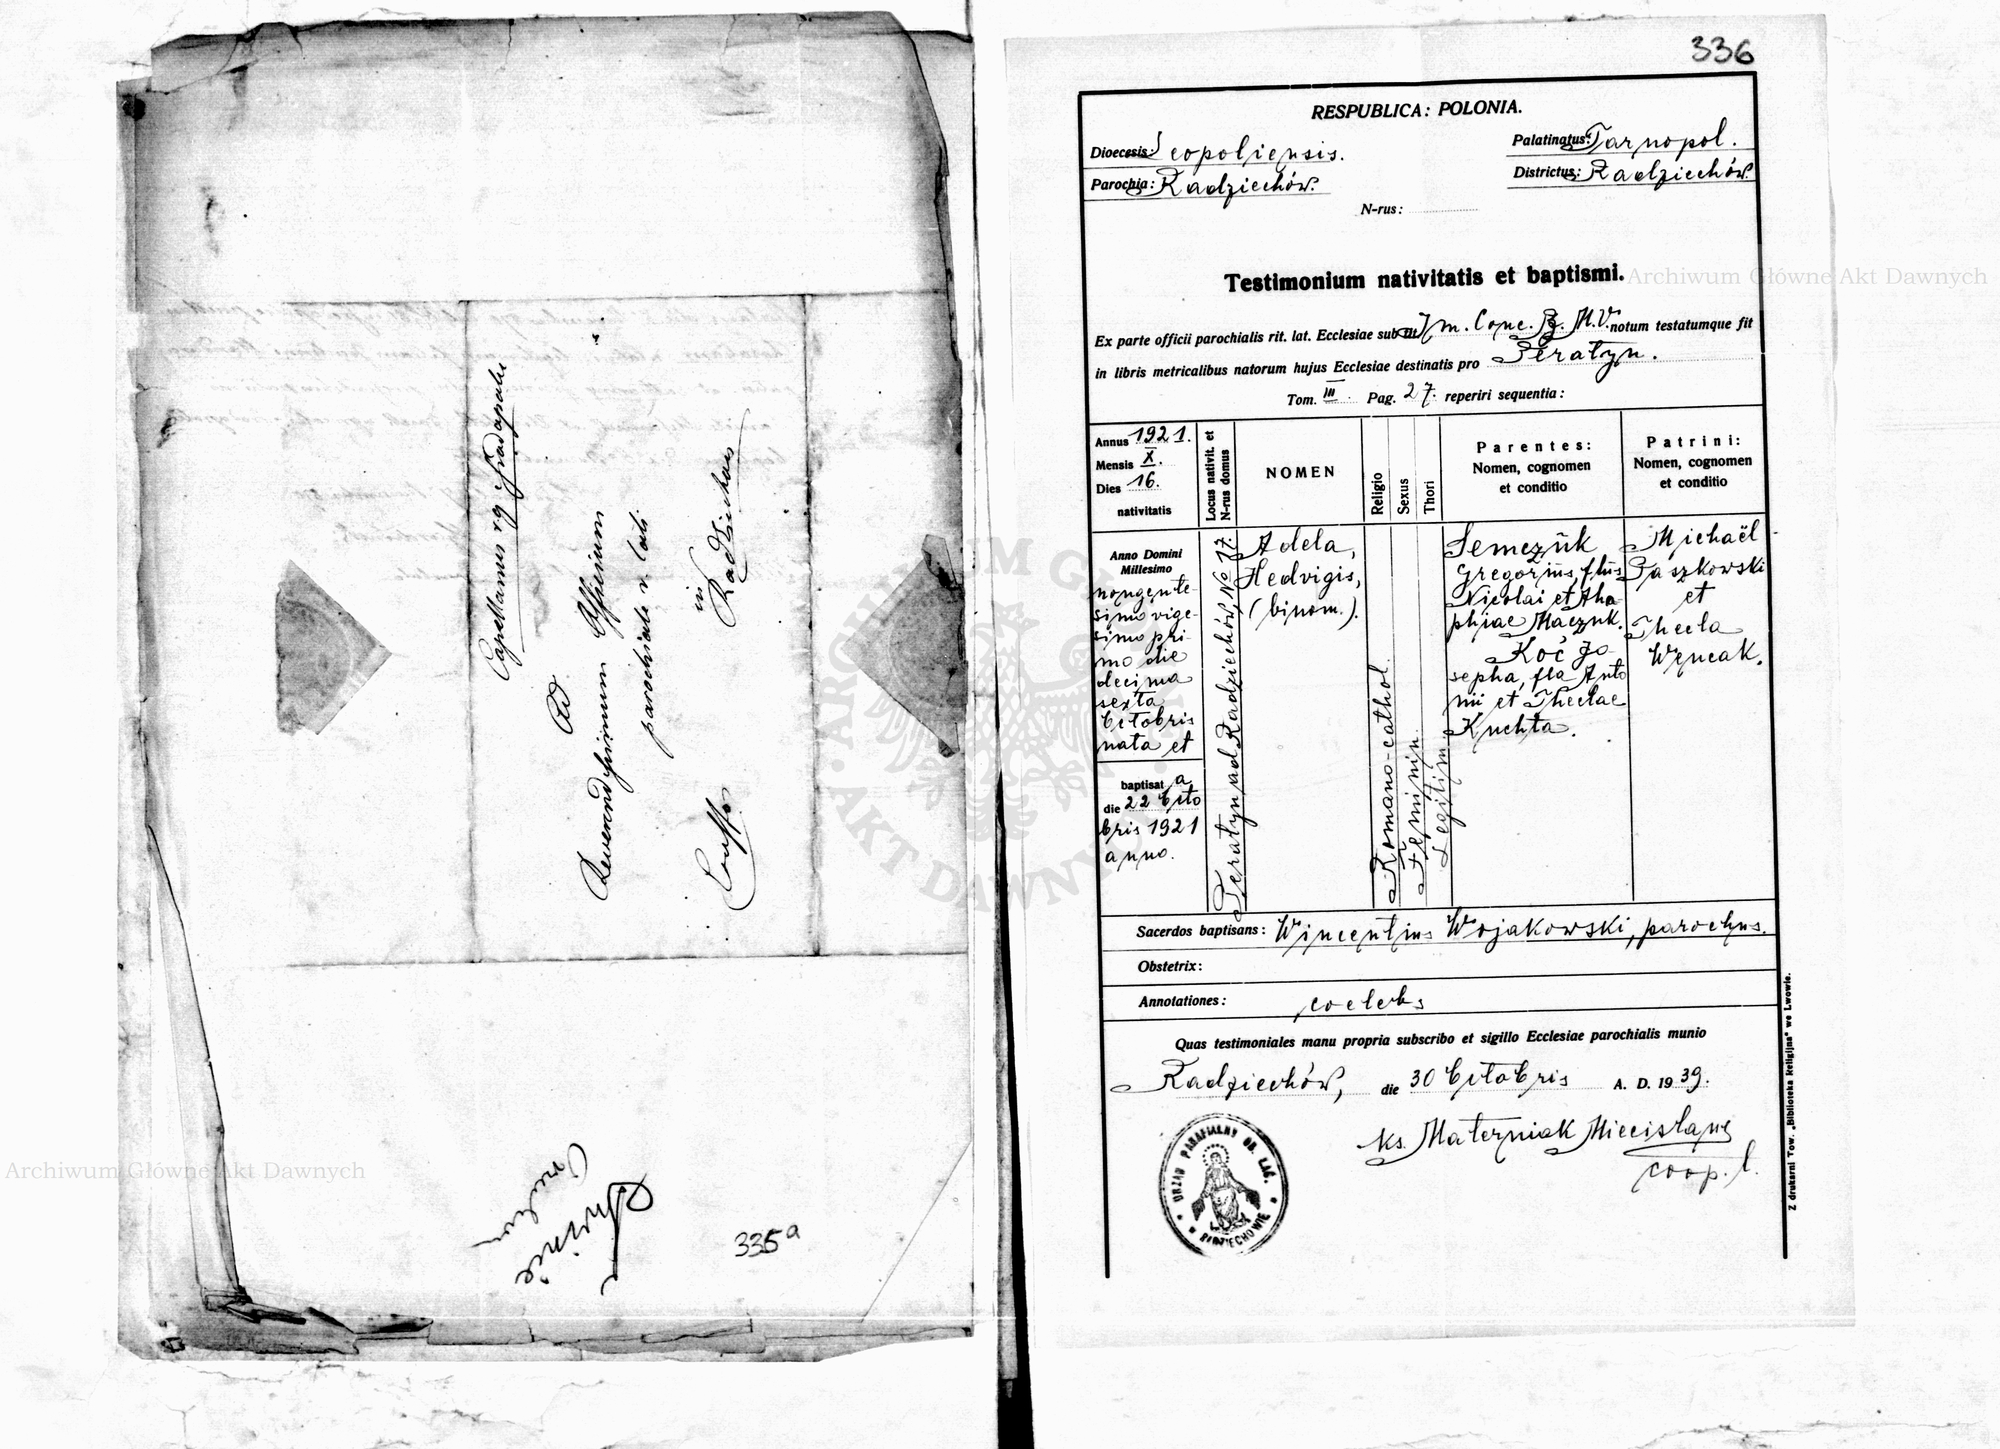 Capellanus
Ad
Reverendissimum Officium
parochiale r. lati
in
Radziechow
335a
336
RESPUBLICA: POLONIA.
Dioecesis: Leopoliensis.
Palatinatus: Tarnopol.
Parochia: Radziechów.
Districtus: Radziechów.
N-rus:
Testimonium nativitatis et baptismi.
Ex parte officii parochialis rit. lat. Ecclesiae sub tit. Im. Conc. B. M. V. notum testatumque fit
in libris metricalibus natorum hujus Ecclesiae destinatis pro Peratyn.
Tom. III. Pag. 27. reperiri sequentia:
Annus 1921.
Mensis X.
Dies 16.
nativitatis
Locus nativit. et
N-rus domus
NOMEN
Religio
Sexus
Thori
Parentes:
Nomen, cognomen
et conditio
Patrini:
Nomen, cognomen
et conditio
Anno Domini
Millesimo
nongente-
simo vige-
simo pri-
mo die
decima
sexta
Octobris
nata et
baptisat a
die 22 Octo
bris 1921
anno.
Peratyn ad Radziechów, No 17.
Adela,
Hedvigis,
(binom.).
Romano-cathol.
Feminin.
Legitim.
Semczuk
Gregorius, flius
Nicolai et Aha-
phiae Maczuk.
Koć Jo-
sepha, fla Anto
nii et Theclae
Kuchta.
Michaël
Paszkowski
et
Thecla
Wencak.
Sacerdos baptisans: Wincentius Wojakowski, parochus.
Obstetrix:
Annotationes: coelebs
Quas testimoniales manu propria subscribo et sigillo Ecclesiae parochialis munio
Radziechów, die 30 Octobris A. D. 1939.
ks. Materniak Mieczysław
coop. l.
URZĄD PARAFIALNY OB. ŁAĆ.
RADZIECHOWIE
Z drukarni Tow. „Biblioteka Religijna" we Lwowie.
Archiwum Główne Akt Dawnych
Archiwum Główne Akt Dawnych
ARCHIWUM GŁÓWNE AKT DAWNYCH